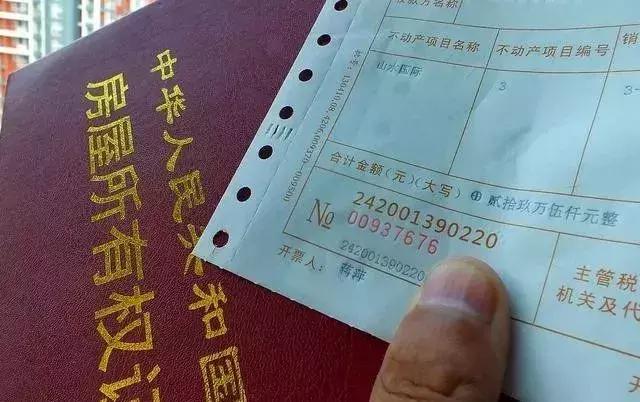 中华人民共和国
房屋所有权证
收款方名称
不动产项目名称
不动产项目编号
销
山水国际
3
3-
合计金额(元)(大写)
⊕ 贰拾玖万伍仟元整
242001390220
№ 00937676
242001390220
开票人:
蒋萍
主管税
机关及代
开